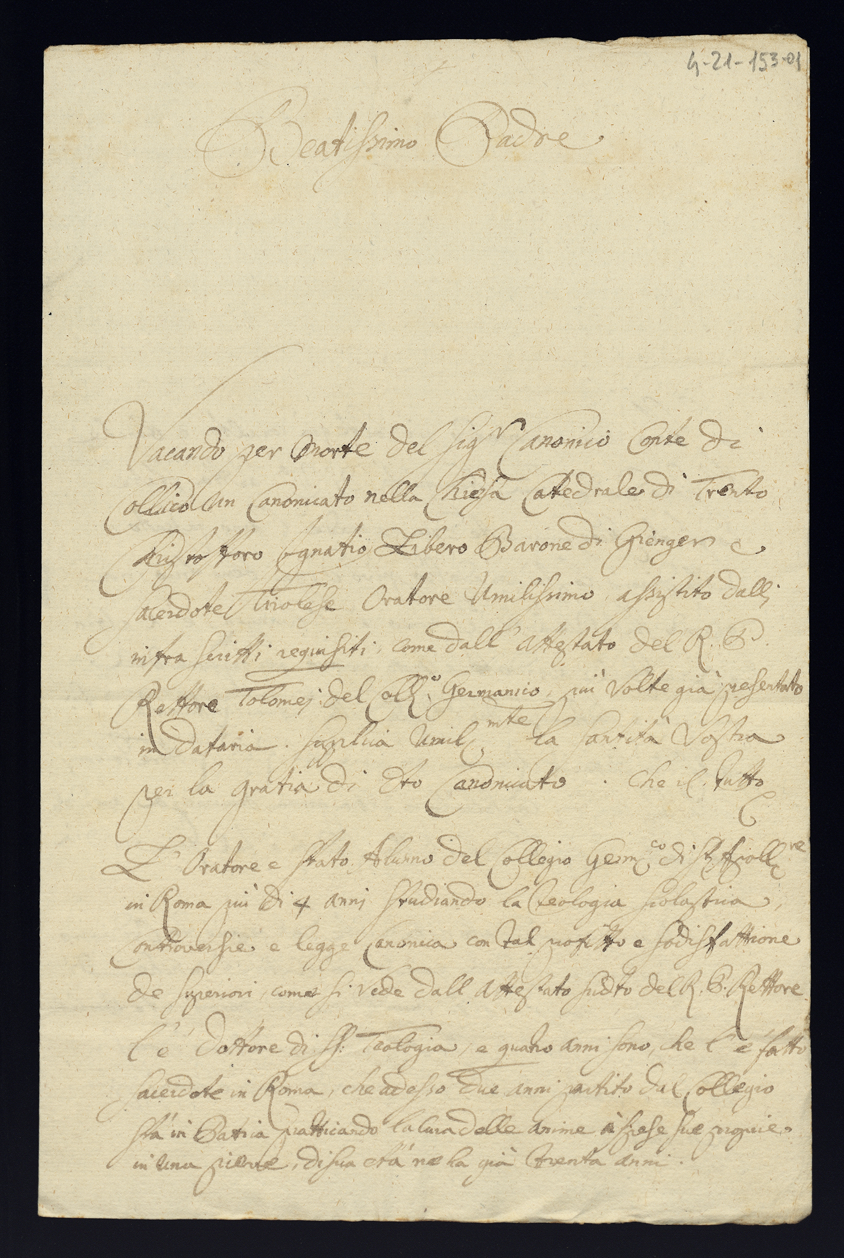 4-21-153-01
Beatissimo Padre
Vacando per Morte del Sigr Canonico Conte di
Collico un Canonicato nella Chiesa Catedrale di Trento
Christofforo Ignatio Libero Barone di Gienger e
Sacerdote Tirolese Oratore Umilissimo, assistito dalli
infra scritti requisiti, come dall' Attestato del R. P.
Rettore Tolomej del Collo Germanico, più Volte già presentatto
in Dataria. supplica Umilmte la Santità Vostra
per la gratia di dto Canonicato. che il tutto
L' Oratore e stato Alunno del Collegio Germco di
in Roma più di 4 anni studiando la Teologia scolastica,
Controversie e legge Canonica con tal profitto e sodisfattione
de superiori, come si vede dall Attestato sudto del R. P. Rettore
l'é Dottore di SS: Teologia, e quatro anni sono, che l'é fatto
sacerdote in Roma, che adesso due anni partito dal Collegio
stà in Patria pratticando la cura delle anime à spese sue proprie
in una pieve, di sua età ne ha già trenta anni.